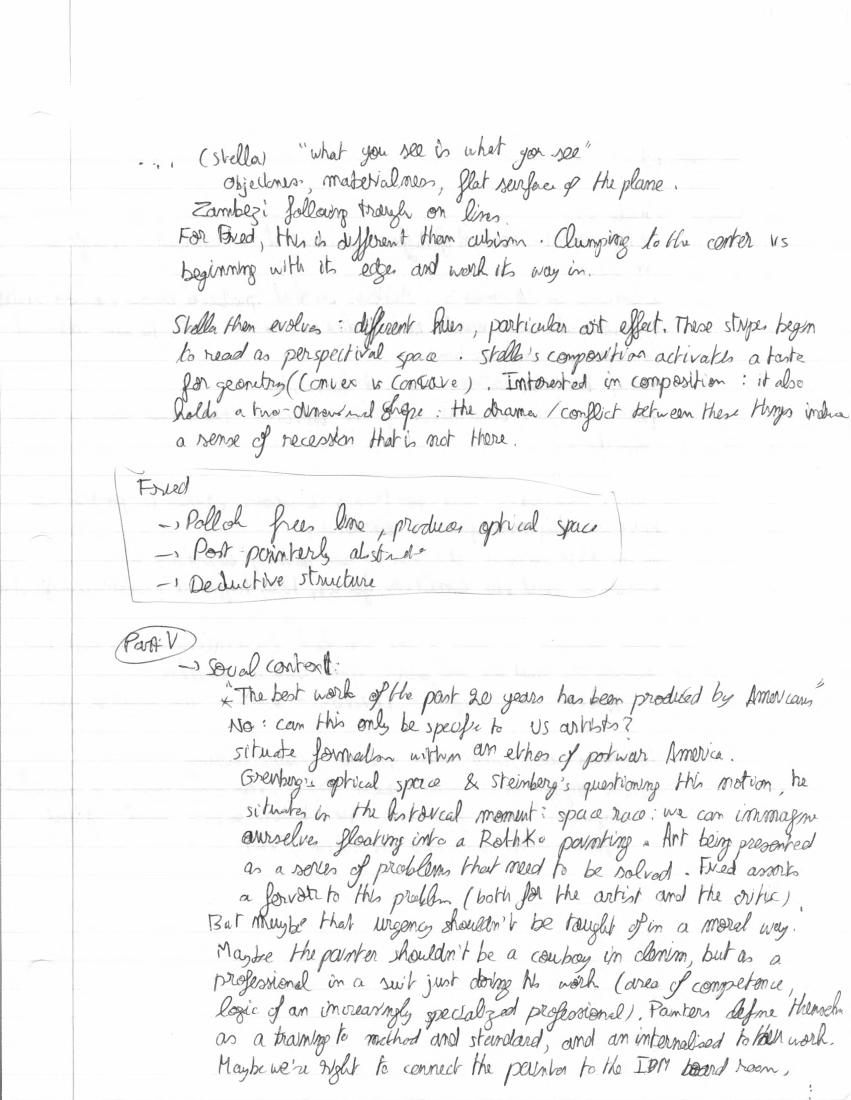 .... (Stella) "what you see is what you see"
objectness, materialness, flat surface of the plane.
Zambezi following trough on lines.
For Fried, this is different than cubism. Clumping to the center vs
beginning with its edge and work its way in.
Stella then evolves: different hues, particular art effect. These stripes begin
to read as perspectival space. Stella's composition activates a taste
for geometry (Convex vs Concave). Interested in composition: it also
holds a two-dimensional shape: the drama / conflict between these things induce
a sense of recession that is not there.
Fried
→ Polloh frees line, produces optical space
→ Post painterly abstract
→ Deductive structure
Part V
→ Social context:
* "The best work of the past 20 years has been produced by Americans"
No: can this only be specific to US artists?
situate formalism within an ethos of postwar America.
Greenberg's optical space & Steinberg's questioning this motion, he
situates in the historical moment: space race: we can immagine
ourselves floating into a Rothko painting. Art being presented
as a series of problems that need to be solved. Fried asserts
a fervor to this problem (both for the artist and the critic).
But maybe that urgency shouldn't be tought of in a moral way.
Maybe the painter shouldn't be a cowboy in denim, but as a
professional in a suit just doing his work (area of competence,
logic of an increasingly specialized professional). Painters define themselves
as a training to method and standard, and an internalised to their work.
Maybe we're right to connect the painter to the IBM board room,